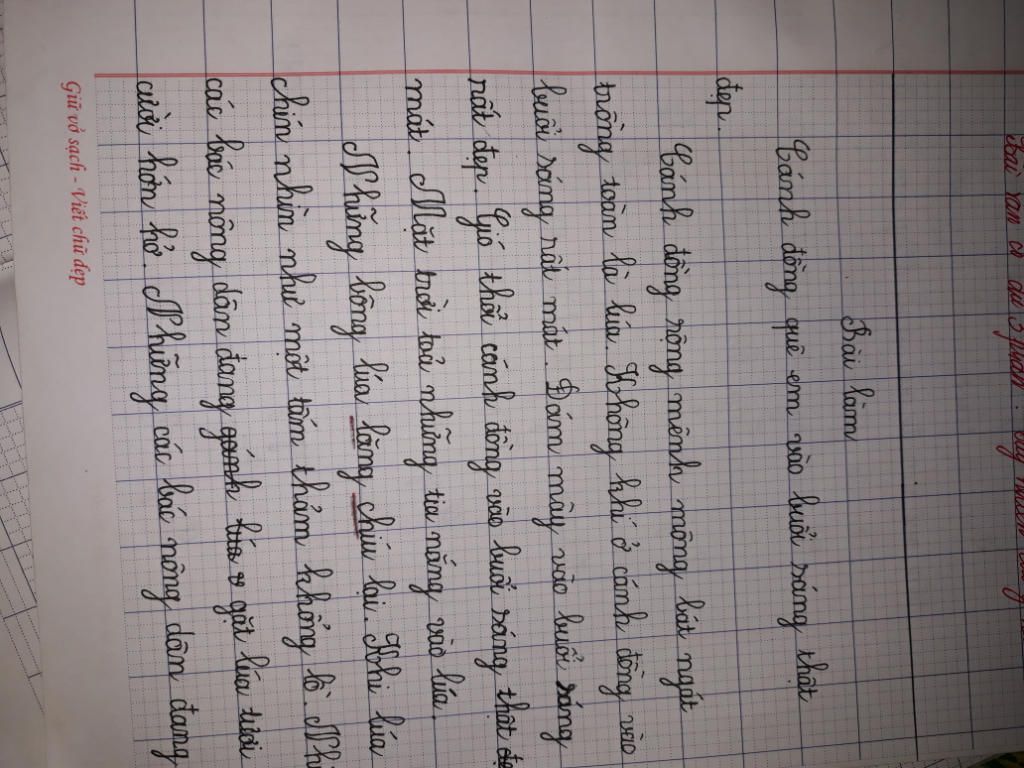 Bài làm
Cánh đồng quê em vào buổi sáng thật
đẹp.
Cánh đồng rộng mênh mông bát ngát
trồng toàn là lúa. Không khí ở cánh đồng vào
buổi sáng rất mát. Đám mây vào buổi sáng
rất đẹp. Gió thổi cánh đồng vào buổi sáng thật
mát. Mặt trời toả những tia nắng vào lúa.
Những bông lúa lõng chíu lại. Khi lúa
chín nhìn như một tấm thảm khổng lồ. Nh
các bác nông dân đang gánh lúa gặt lúa tười
cười hớn hở. Những các bác nông dân đang
Giữ vở sạch - Viết chữ đẹp